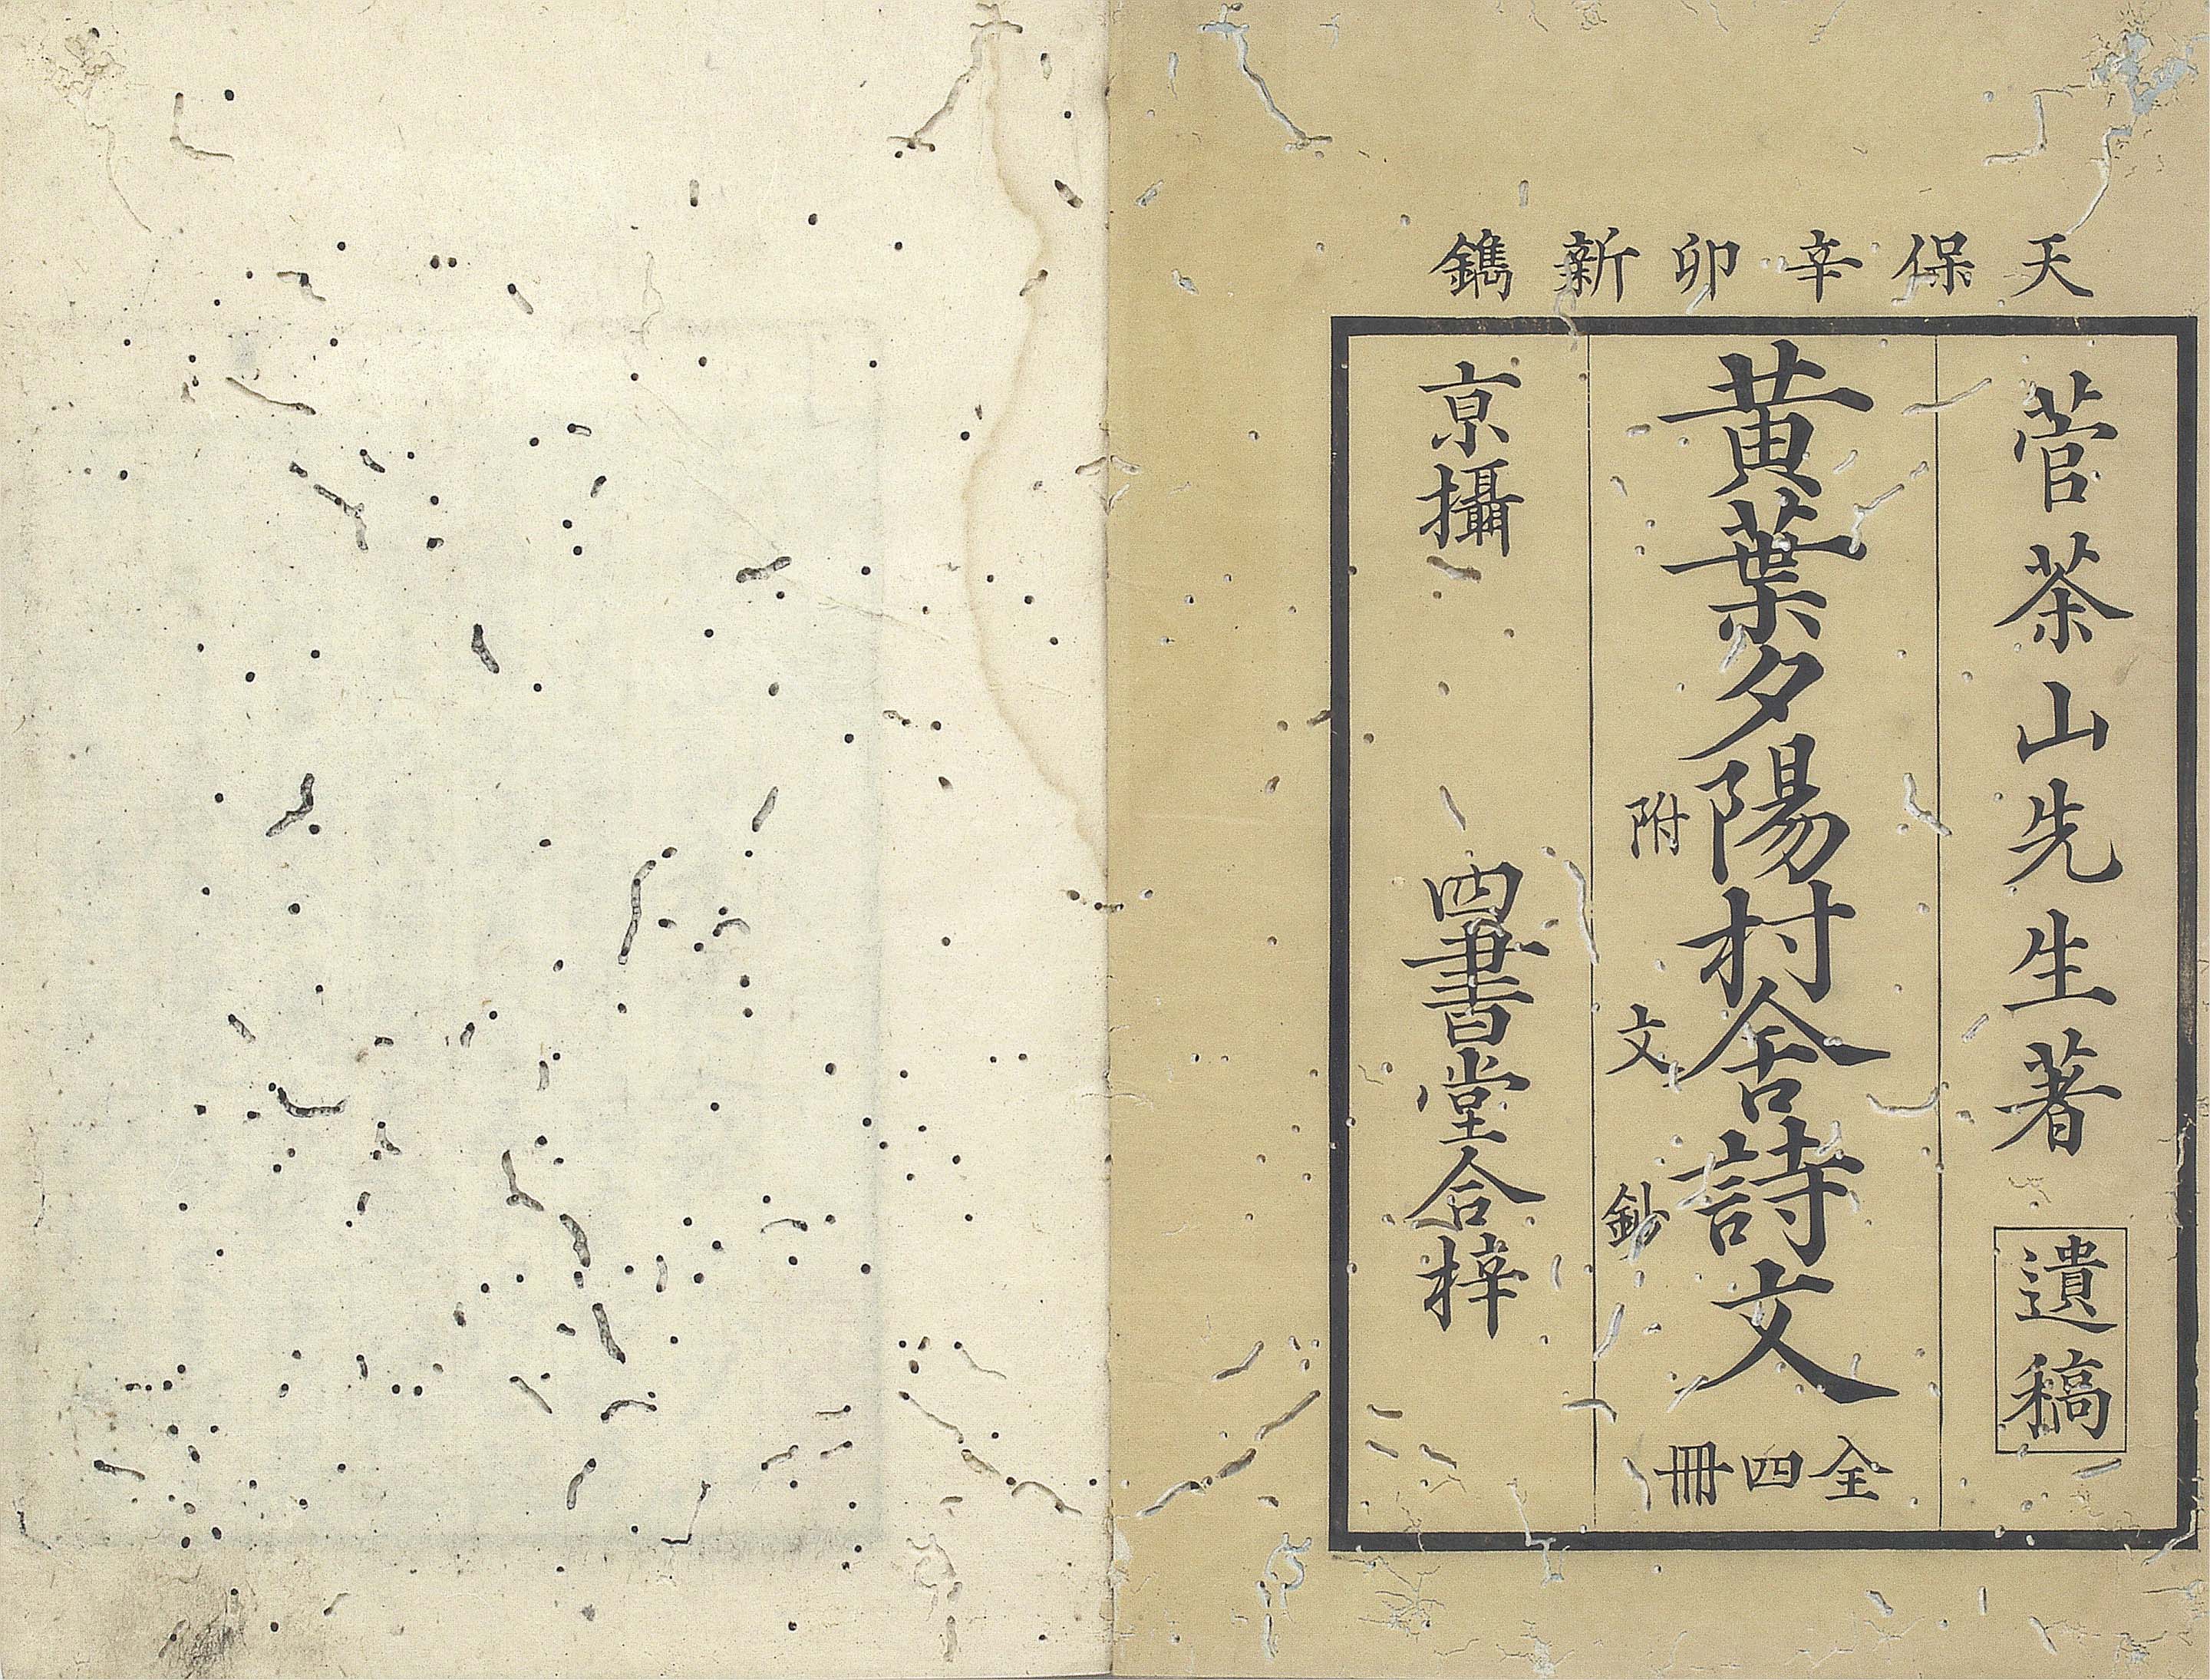 天保辛卯新鐫
菅茶山先生著
遺稿
黄葉夕陽村舎詩文
附文鈔
全四冊
京攝
四書堂合梓